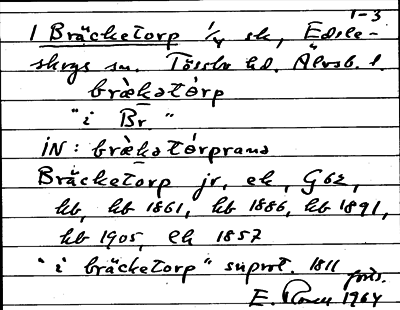 1-3
1 Bräcketorp 1/4 sk, Edsle-
skogs sn. Tössbo hd. Älvsb. l.
brækətórp
"i Br."
iN: brækətórprana
Bräcketorp jr, ek, G62,
kb, hb 1861, hb 1886, hb 1891,
hb 1905, Ek 1857
"i bräcketorp" suprot. 1811
forts.
E. Rosen 1964